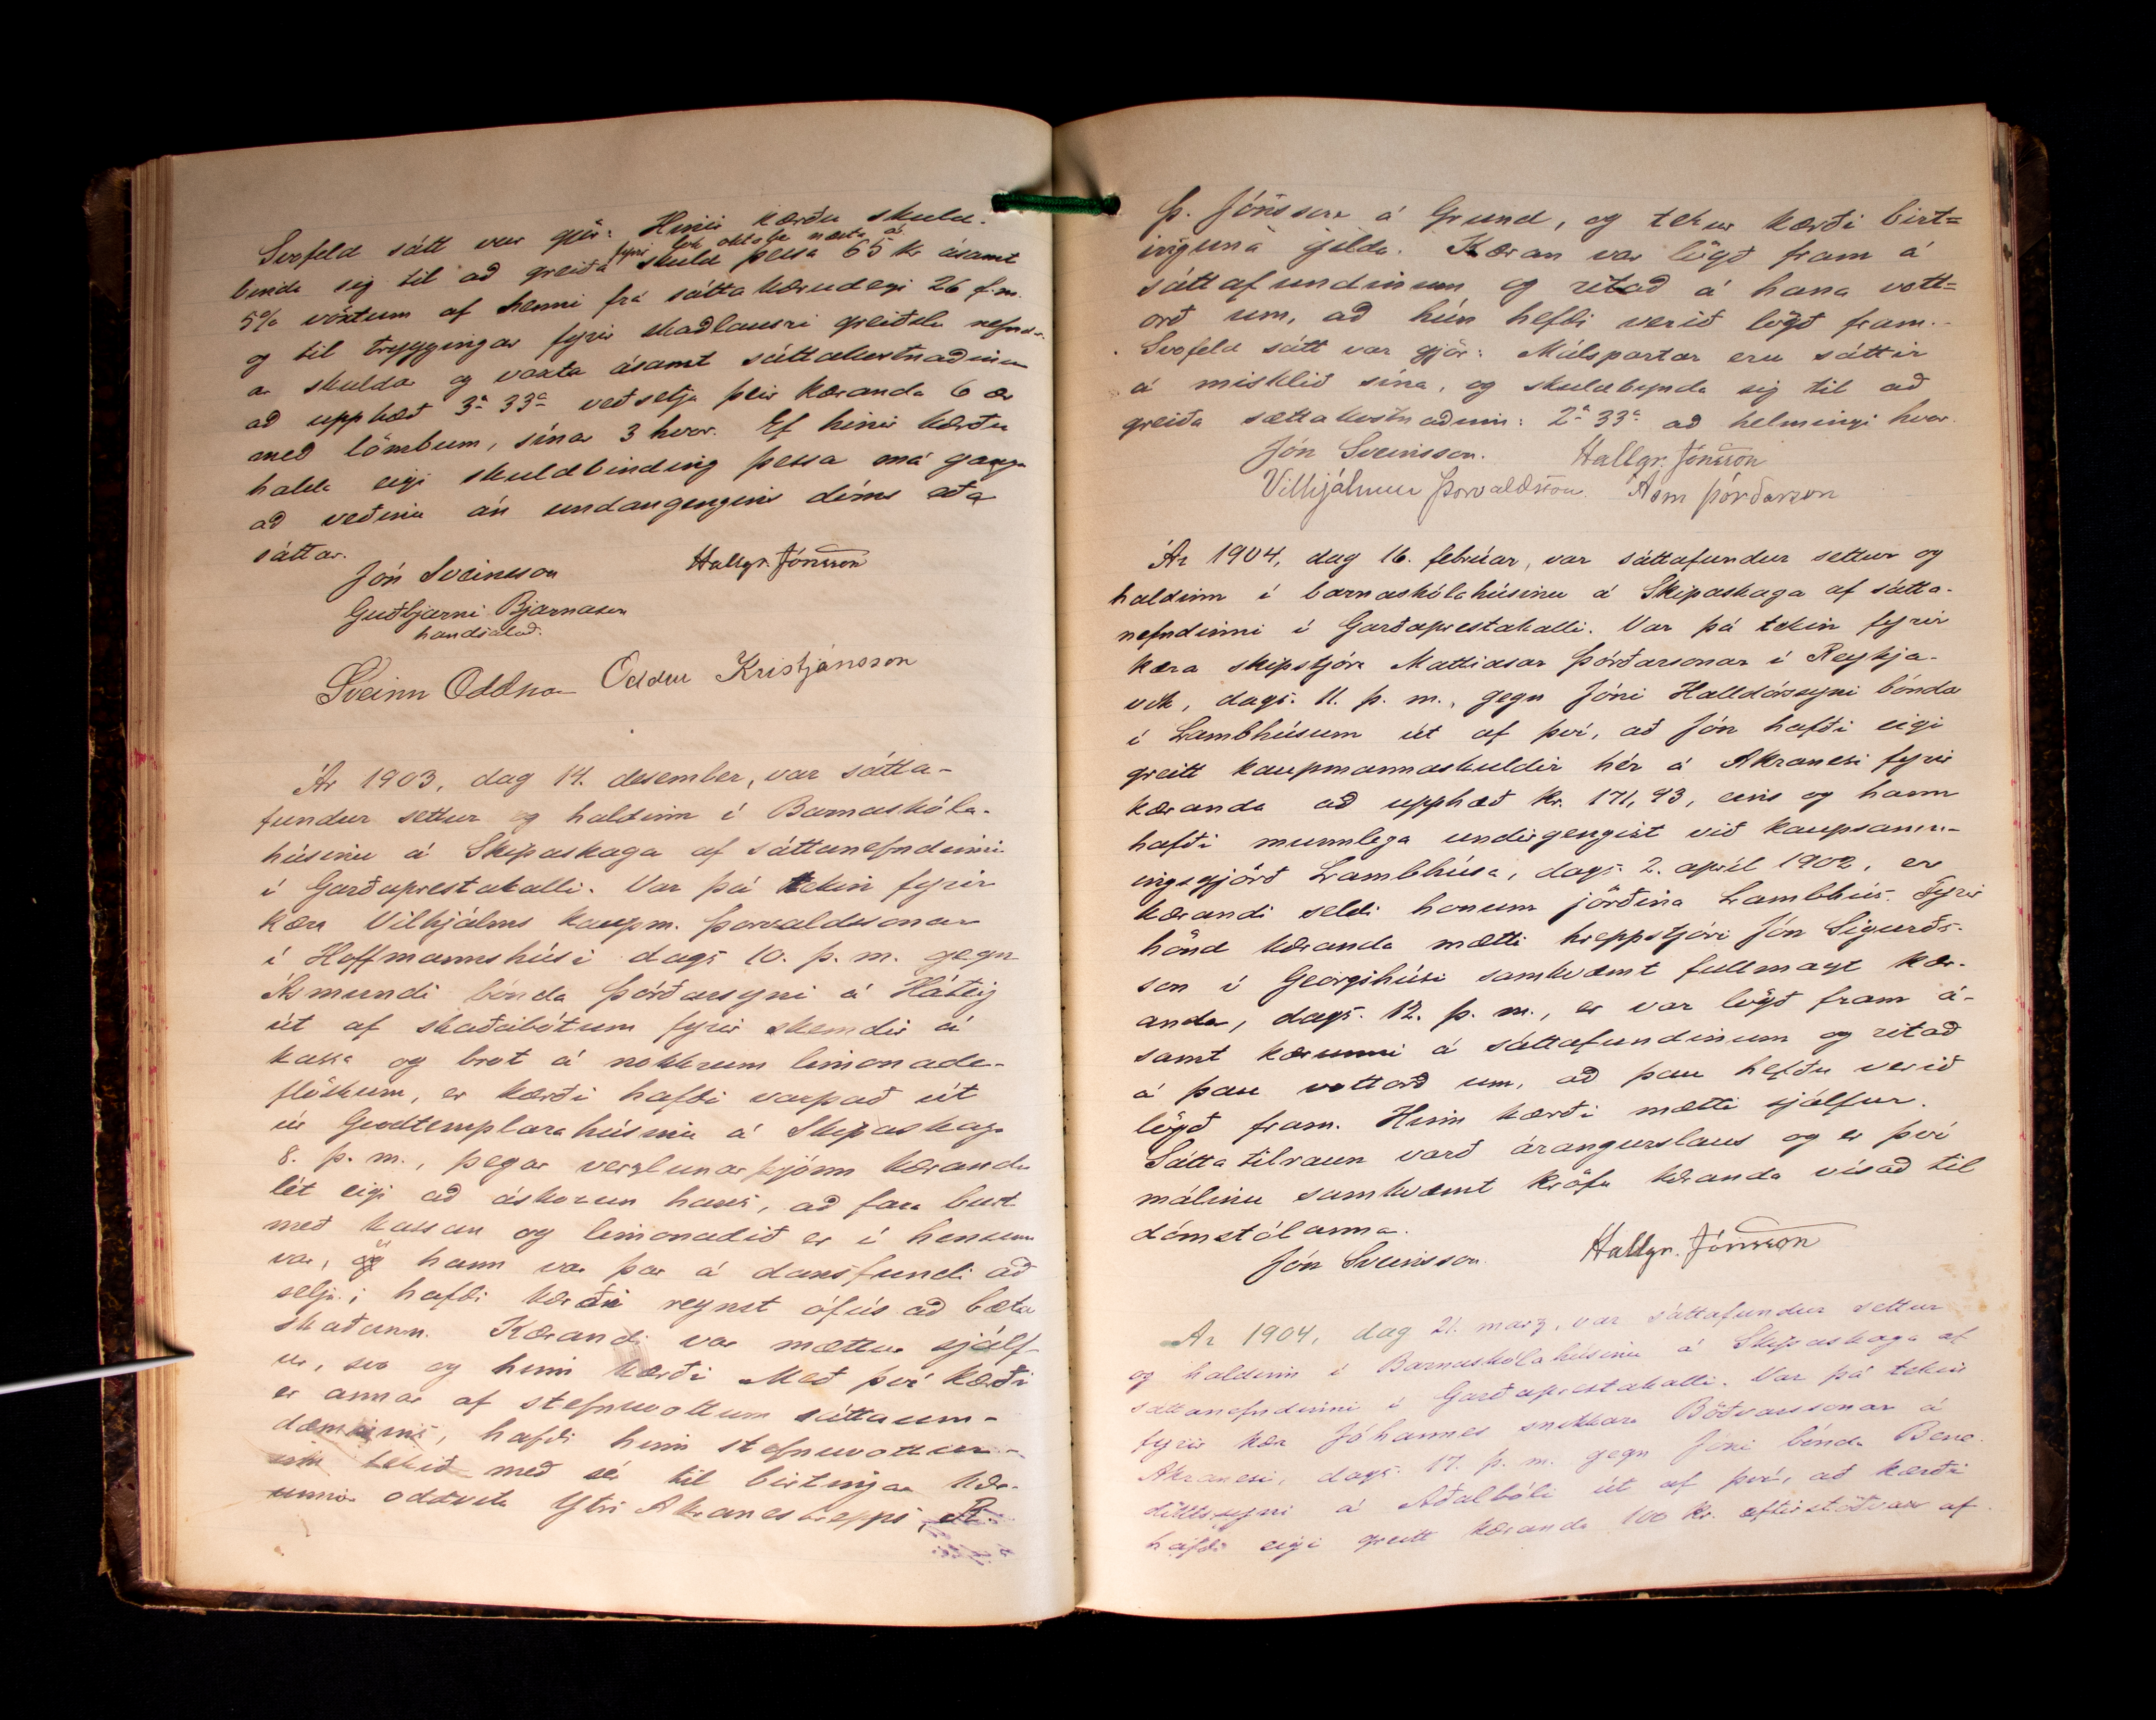 Svofeld sátt var gjör: Hinir kærðu skuld-
fyrir lok október næsta ár
binda sig til að greiða skuld þessa 65 kr ásamt
5% vöxtum af henni frá sáttakærudegi 26 f. m.
og til tryggingar fyrir skaðlausri greiðslu nefndr-
ar skuldar og vaxta ásamt sáttakostnaðinum
að upphæð 3 kr 33 a veðsetja þeir kæranda 6 ær
með lömbum, sínar 3 hvor. Ef hinir kærðu
halda eigi skuldbinding þessa má ganga
að veðinu án undangengins dóms eða
sáttar.
Jón Sveinsson Hallgr. Jónsson
Guðbjarni Bjarnason
handsalað.
Sveinn Oddson Oddur Kristjánsson
Ár 1903, dag 14. desember, var sátta-
fundur settur og haldinn í Barnaskóla-
húsinu á Skipaskaga af sáttanefndinni
í Garðaprestakalli. Var þá tekin fyrir
kæra Vilhjálms kaupm. Þorvaldssonar
í Hoffmannshúsi dags 10. þ. m. gegn
Ásmundi bónda Þórðarsyni á Háteig
út af skaðabótum fyrir skemdir á
kassa og brot á nokkrum limonade-
flöskum, er kærði hafði varpað út
úr Goodtemplarahúsinu á Skipaskaga
8. þ. m., þegar verzlunarþjónn kæranda
lét eigi að áskorun hans, að fara burt
með kassan og limonadið er í honum
var, er hann var þar á dansfundi að
selja; hafði kærði reynst ófús að bæta
skaðann. Kærandi var mættur sjálf-
ur, svo og hinn kærði Með því kærði
er annar af stefnuvottum sáttaum-
dæmisins, hafði hinn stefnuvotturinn
tekið með sér til birtingar kær-
unnar oddvita Ytri Akraneshrepps,
Þ. Jónsson á Grund, og tekur kærði birt=
inguna gilda. Kæran var lögð fram á
sáttafundinum og ritað á hana vott=
orð um, að hún hefði verið lögð fram.
Svofeld sátt var gjör: Málspartar eru sáttir
á misklíð sína, og skuldbynda sig til að
greiða sáttakostnaðinn: 2 kr 33 a að helmingi hvor.
Jón Sveinsson. Hallgr. Jónsson
Vilhjálmur Þorvaldsson. Ásm Þórðarson
Ár 1904, dag 16. febrúar, var sáttafundur settur og
haldinn í barnaskólahúsinu á Skipaskaga af sátta-
nefndinni í Garðaprestakalli. Var þá tekin fyrir
kæra skipstjóra Mattíasar Þórðarsonar í Reykja-
vík, dags. 11. þ. m., gegn Jóni Halldórssyni bónda
í Lambhúsum út af því, að Jón hafði eigi
greitt kaupmannaskuldir hér á Akranesi fyrir
kæranda að upphæð kr. 171,93, eins og hann
hafði munnlega undirgengist við kaupsamn-
ingsgjörð Lambhúsa, dags. 2. apríl 1902, er
kærandi seldi honum jörðina Lambhús. Fyrir
hönd kæranda mætti hreppstjóri Jón Sigurðs-
son í Georgshúsi samkvæmt fullmagt kær-
anda, dags. 12. þ. m., er var lögð fram á-
samt kærunni á sáttafundinum og ritað
á þau vottorð um, að þau hefðu verið
lögð fram. Hinn kærði mætti sjálfur.
Sáttatilraun varð árangurslaus og er því
málinu samkvæmt kröfu kæranda vísað til
dómstólanna.
Jón Sveinsson. Hallgr. Jónsson
Ár 1904, dag 21. marz, var sáttafundur settur
og haldinn í Barnaskólahúsinu á Skipaskaga af
sáttanefndinni í Garðaprestakalli. Var þá tekin
fyrir kæra Jóhannes snikkara Böðvarssonar á
Akranesi, dags. 17. þ. m. gegn Jóni bónda Bene-
diktssyni á Aðalbóli út af því, að kærði
hafði eigi greitt kæranda 100 kr. eftirstöðvar af